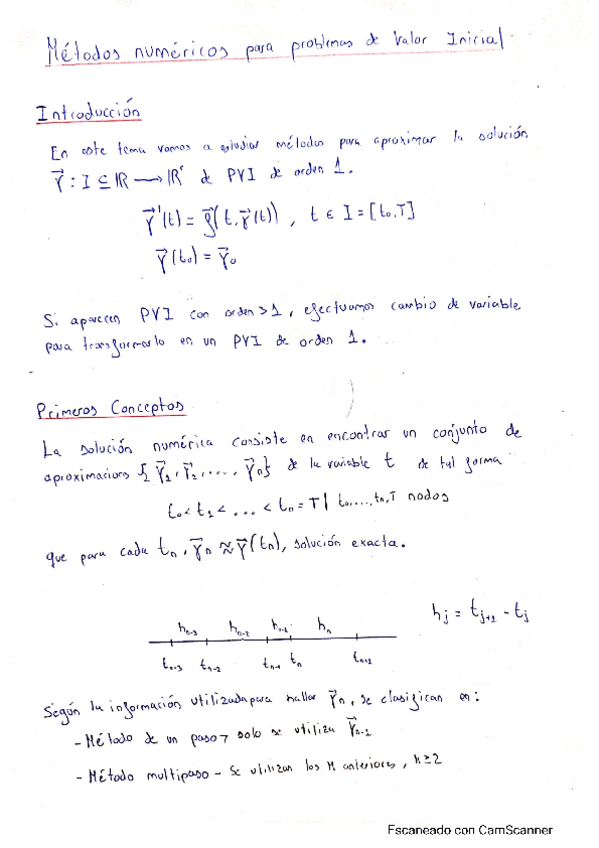 Métodos numéricos para problemas de Valor Inicial
Introducción
En este tema vamos a estudiar métodos para aproximar la solución
γ⃗ : I ⊆ ℝ → ℝʳ de PVI de orden 1.
γ⃗'(t) = f⃗(t, γ⃗(t)) , t ∈ I = [t₀,T]
γ⃗(t₀) = γ⃗₀
Si aparecen PVI con orden > 1, efectuamos cambio de variable
para transformarlo en un PVI de orden 1.
Primeros Conceptos
La solución numérica consiste en encontrar un conjunto de
aproximacions { γ⃗₁, γ⃗₂, ...., γ⃗ₙ} de la variable t de tal forma
t₀ < t₁ < ... < tₙ = T | t₀,...,tₙ,T nodos
que para cada tₙ, γ⃗ₙ ≈ γ⃗(tₙ), solución exacta.
hₙ₋₃ hₙ₋₂ hₙ₋₁ hₙ
hⱼ = tⱼ₊₁ - tⱼ
tₙ₋₃ tₙ₋₂ tₙ₋₁ tₙ tₙ₊₁
Según la información utilizada para hallar γ⃗ₙ, se clasifican en:
- Método de un paso → solo se utiliza γ⃗ₙ₋₁
- Método multipaso - Se utilizan los k anteriores, k ≥ 2
Escaneado con CamScanner